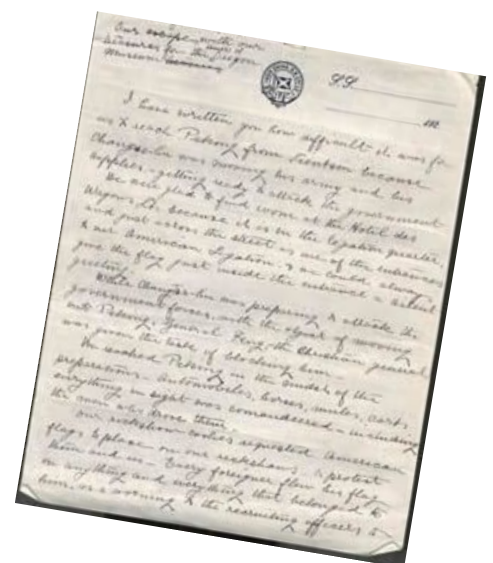 Our escape with our
treasures for the Oregon
Museum
S.S.
192
I have written you how difficult it was for
us to reach Peking from Tientsin because
Chang-tso-lin was moving his army and his
supplies - getting ready to attack the government
We were glad to find room at the Hotel des
Wagons Lits because it is in the legation quarter,
and just across the street is one of the entrances
to our American Legation & we could always
give the flag just inside the entrance a
greeting
While Chang-tso-lin was preparing to attack the
government forces, with the object of moving
out Peking, General Feng the Christian general
was given the task of blocking him.
We reached Peking in the midst of the
preparations. Automobiles, horses, mules, carts,
everything in sight was comandeered - including
the men who drove them.
Our rickshow coolies requested American
flags to place on our rickshaws to protect
them and us - Every foreigner flew his flag
on anything and everything that belonged to
him, as a warning to the recruiting officers to